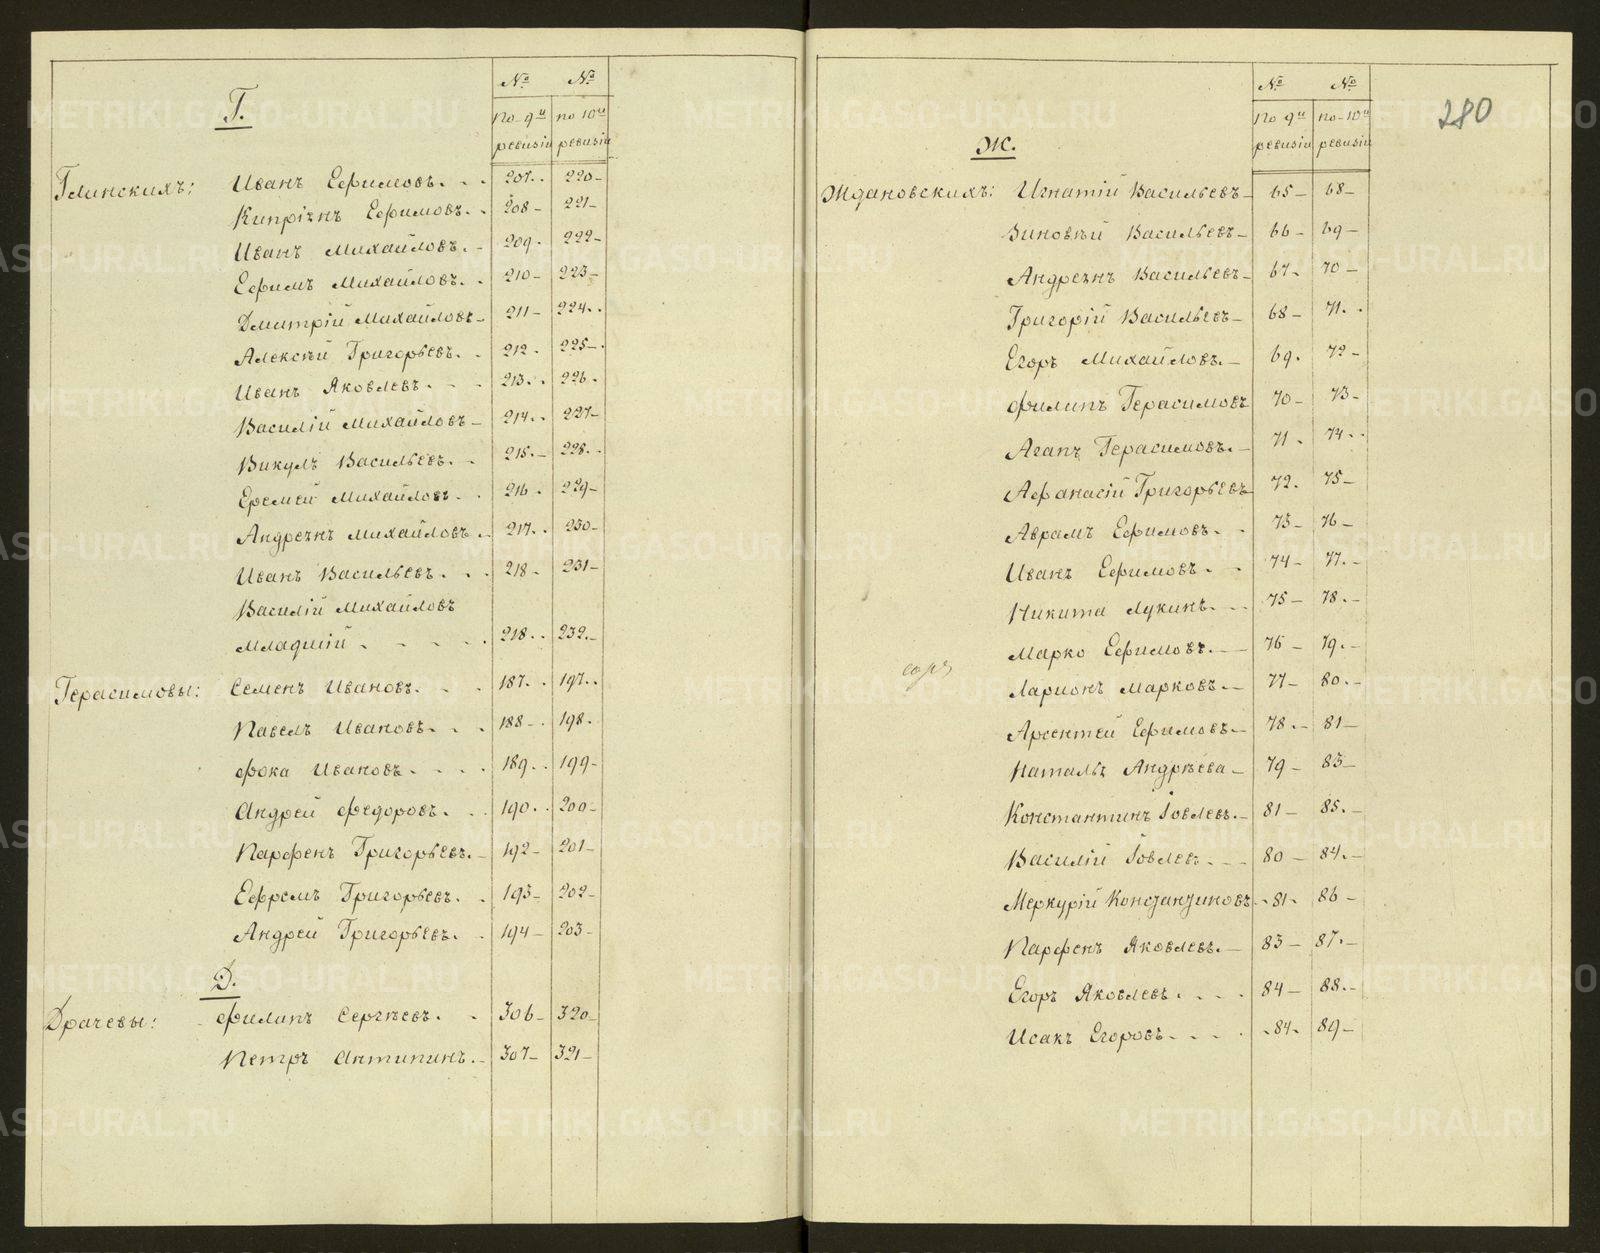 Г.
№ №
по 9й по 10й
ревизіи ревизіи
Глинскихъ: Иванъ Ефимовъ. 207. 220
Кипріянъ Ефимовъ. 208 221
Иванъ Михайловъ. 209. 222
Ефимъ Михайловъ. 210 223
Дмитрій Михайловъ 211 224.
Алексѣй Григорьевъ. 212. 225
Иванъ Яковлевъ. 213. 226.
Василій Михайловъ 214. 227
Викулъ Васильевъ. 215. 228.
Еремей Михайловъ. 216. 229
Андреянъ Михайловъ 217. 230
Иванъ Васильевъ. 218. 231
Василій Михайловъ
младшій. 218. 232.
Герасимовы: Семенъ Ивановъ. 187. 197.
Павелъ Ивановъ. 188 198.
Фока Ивановъ. 189. 199
Андрей Федоровъ. 190. 200
Парфенъ Григорьевъ. 192 201
Ефремъ Григорьевъ. 193 202
Андрей Григорьевъ. 194 203
Д.
Драчевы: Филипъ Сергѣевъ. 306 320
Петръ Антипинъ. 307 321
280
№ №
по 9й по 10й
ревизіи ревизіи
Ж.
Ждановскихъ: Игнатій Васильевъ 65 68
Зиновѣй Васильевъ 66 69
Андреянъ Васильевъ 67. 70
Григорій Васильевъ 68 71.
Егоръ Михайловъ. 69. 72
Филипъ Герасимовъ 70 73
Агапъ Герасимовъ. 71. 74.
Афанасій Григорьевъ 72. 75
Аврамъ Ефимовъ. 73 76
Иванъ Ефимовъ. 74 77.
Никита Лукинъ. 75 78.
Марко Ефимовъ. 76 79.
Ларионъ Марковъ. 77 80.
Арсентей Ефимовъ. 78. 81
Наталья Андрѣева 79 83
Константинъ Іовлевъ. 81 85.
Василій Іовлевъ. 80 84.
Меркурій Константиновъ. 81. 86
Парфенъ Яковлевъ. 83 87.
Егоръ Яковлевъ. 84 88.
Исакъ Егоровъ. 84. 89